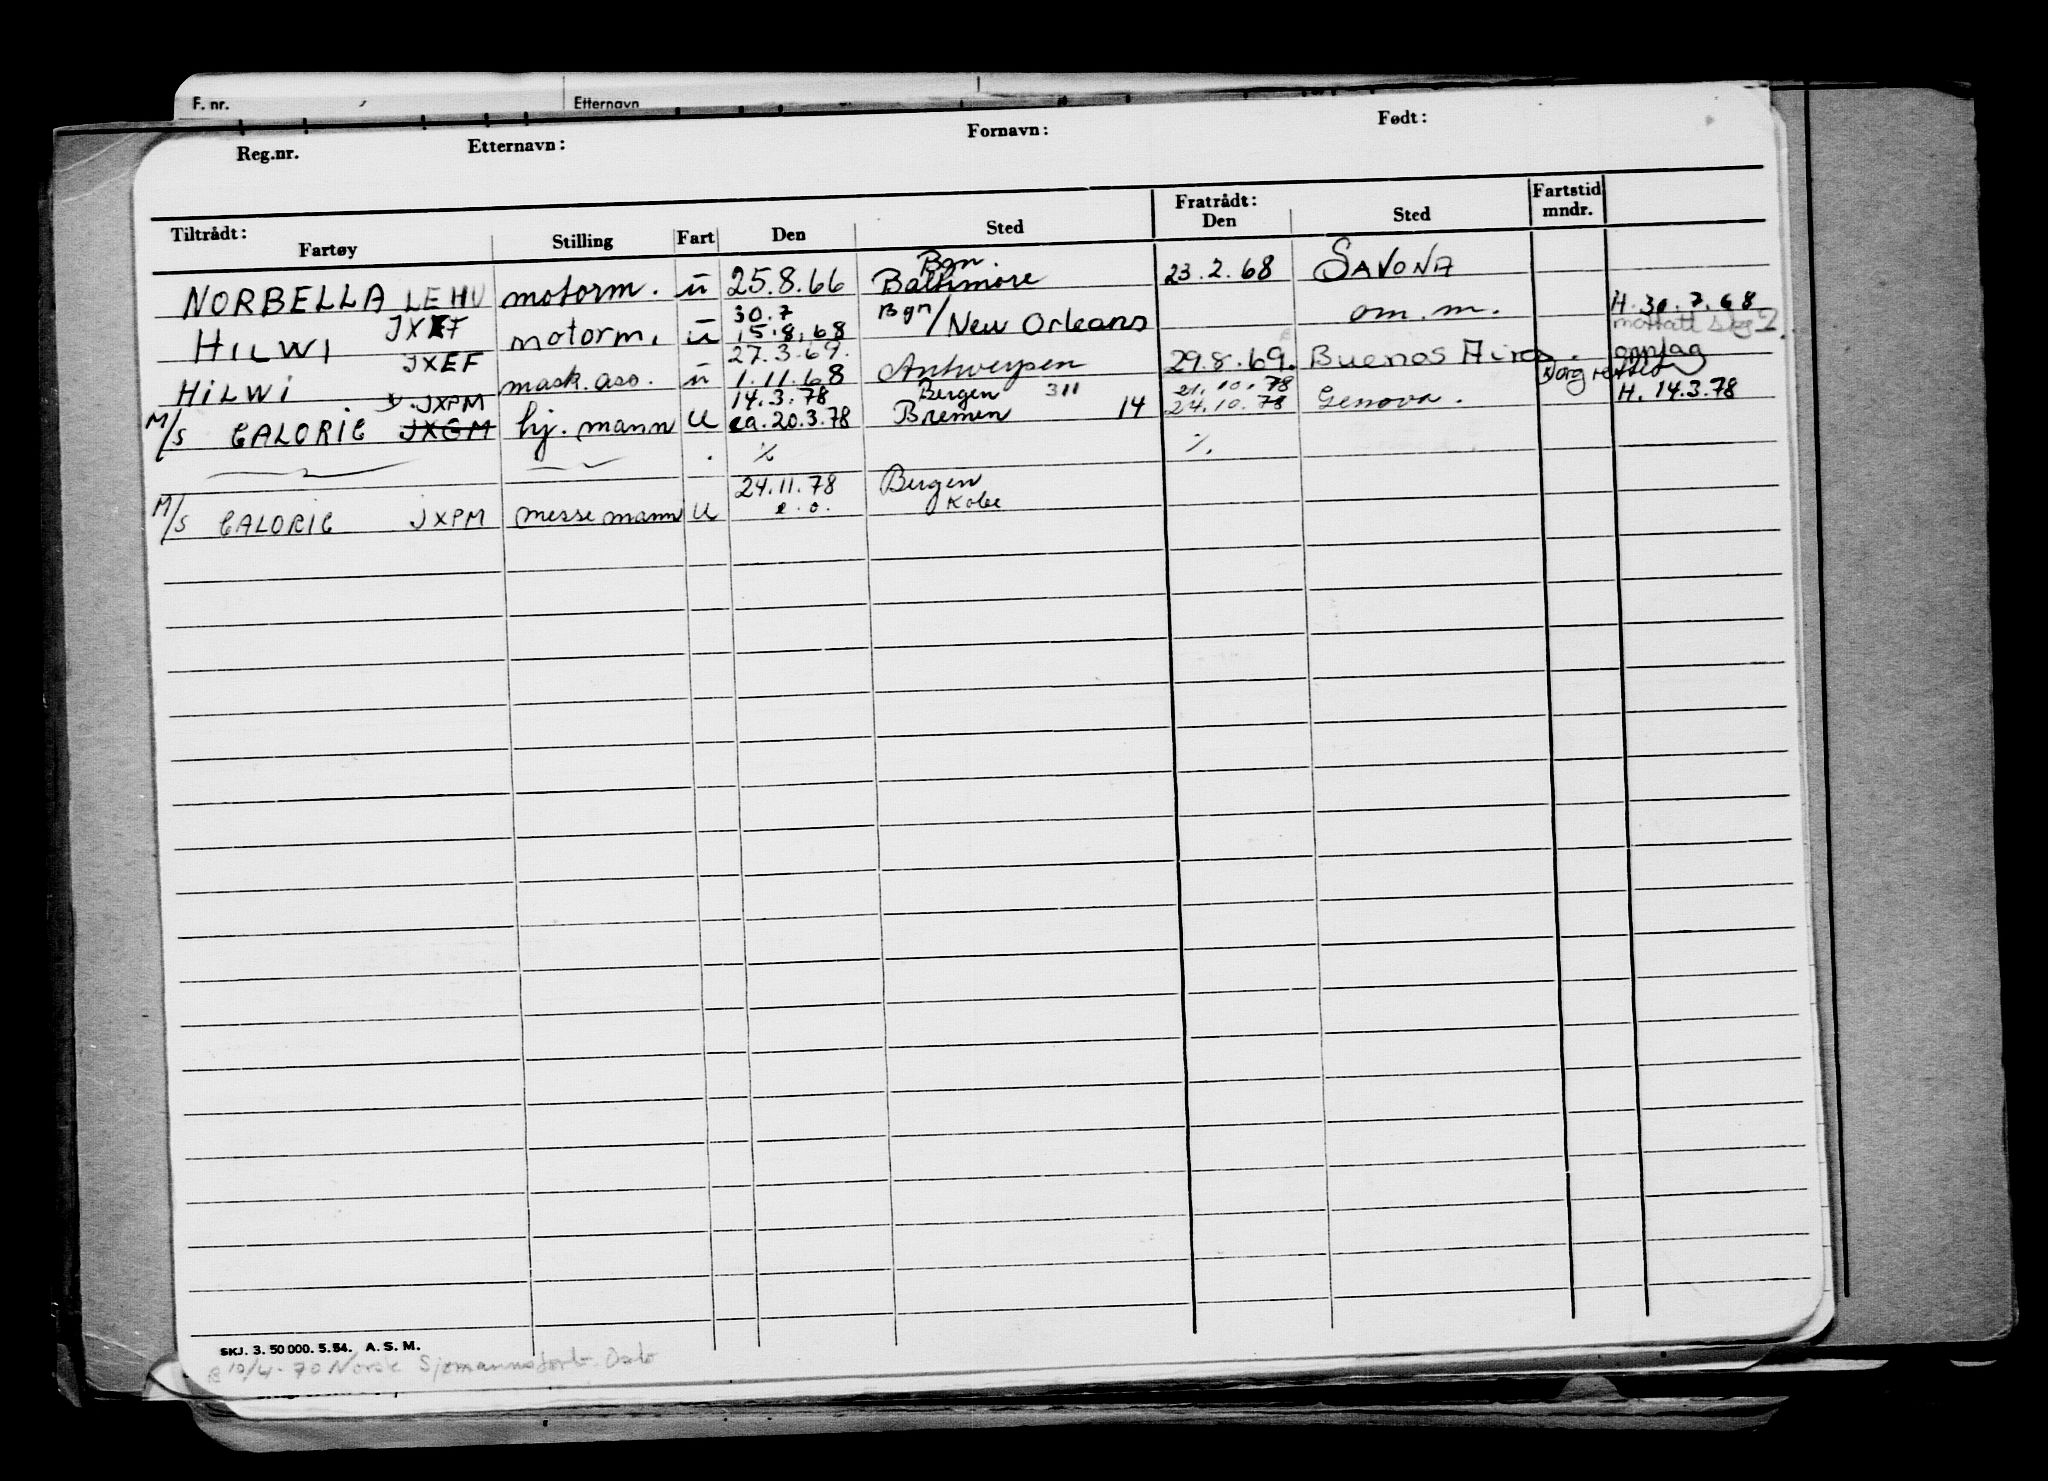 F. nr. Etternavn
Reg.nr. Etternavn: Fornavn: Født:
Tiltrådt: Fratrådt: Fartstid
Fartøy Stilling Fart Den Sted Den Sted mndr.
Bgn.
NORBELLA LEHU motorm. u 25.8.66 Baltimore 23.2.68 SAVONA
30.7 Bgn/
HILWI JXEF motorm. u 15.8.68 New Orleans om. m. H. 30.7.68
27.3.69.
HILWI JXEF mask. ass. u 1.11.68 Antwerpen 29.8.69. Buenos Aires.
14.3.78 Bergen 311 21.10.78
M/S CALORIC JXPM JXGM hj. mann U ca. 20.3.78 Bremen 14 24.10.78 Genova. H. 14.3.78
٪ ٪
24.11.78 Bergen
M/S CALORIC JXPM messemann U e.o. Kobe
SKJ. 3. 50 000. 5.54. A. S. M.
10/4-70 Norsk Sjømannsforb. Oslo